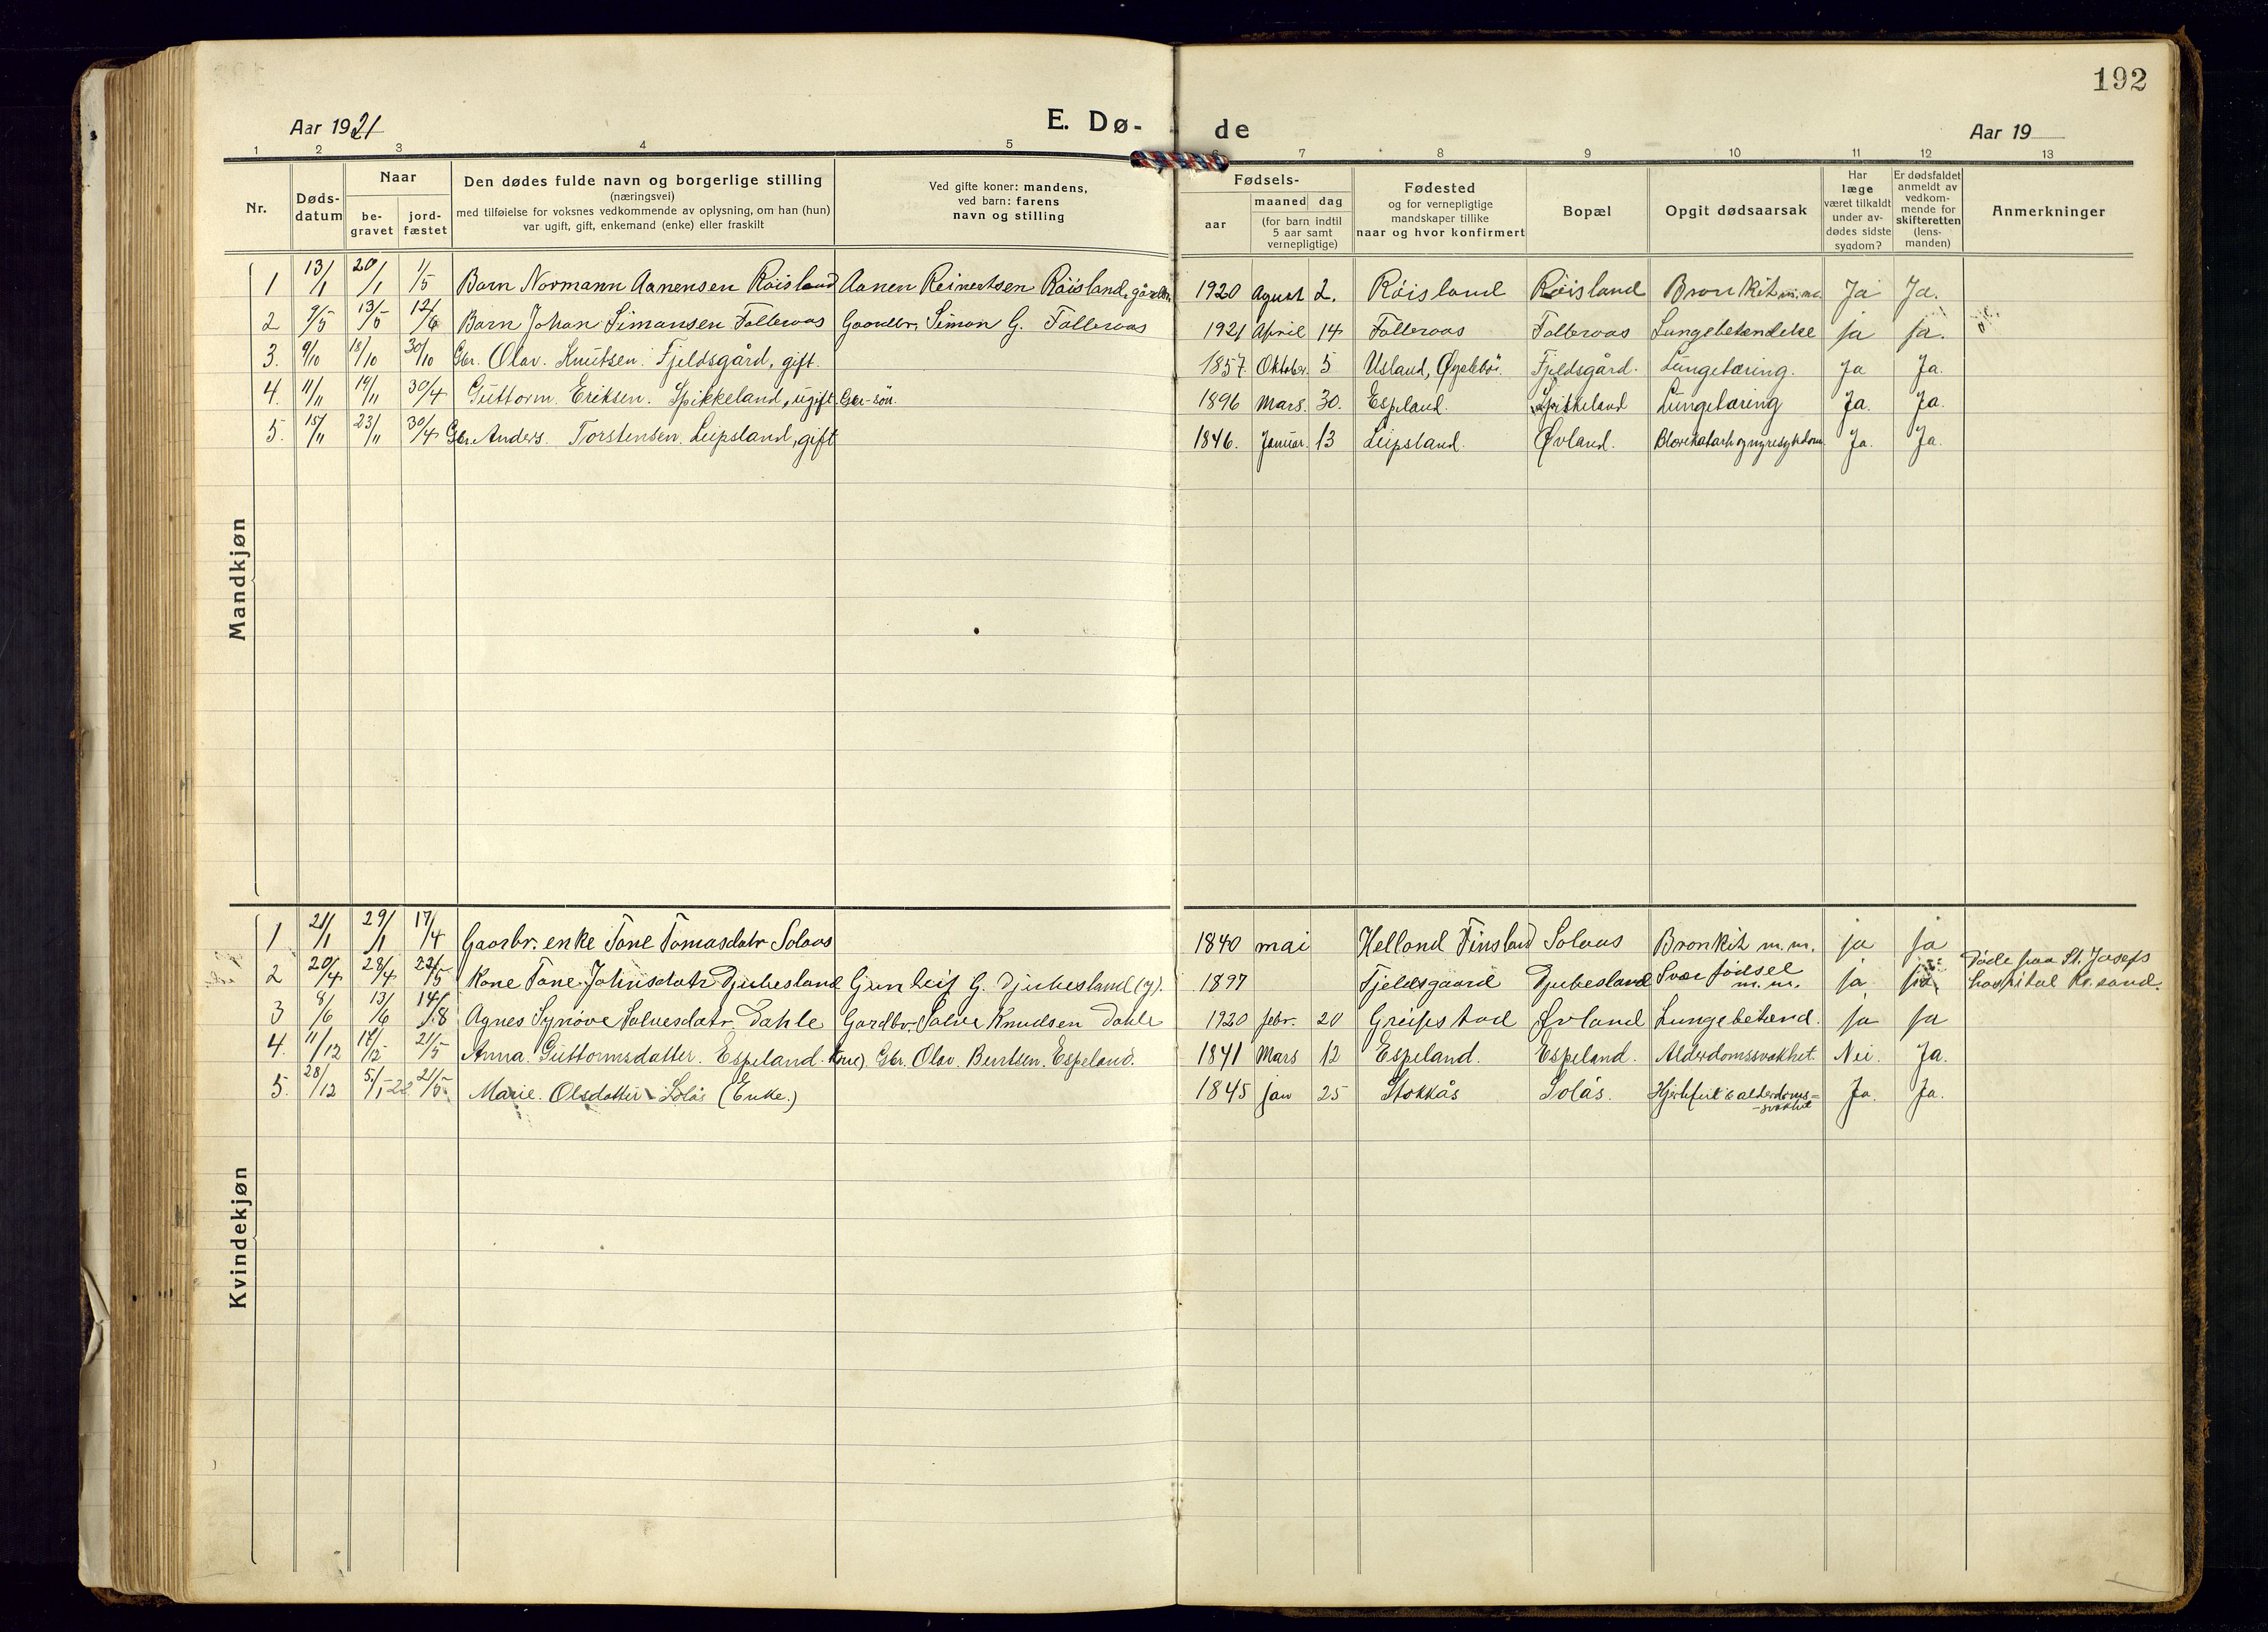 192
Aar 1921
E. Dø-
de
Aar 19
1 2 3 4 5 6 7 8 9 10 11 12 13
Nr.
Døds-
datum
Naar
be-
gravet
jord-
fæstet
Den dødes fulde navn og borgerlige stilling
(næringsvei)
med tilføielse for voksnes vedkommende av oplysning, om han (hun)
var ugift, gift, enkemand (enke) eller fraskilt
Ved gifte koner: mandens,
ved barn: farens
navn og stilling
Fødsels-
aar
maaned dag
(for barn indtil
5 aar samt
vernepligtige)
Fødested
og for vernepligtige
mandskaper tillike
naar og hvor konfirmert
Bopæl
Opgit dødsaarsak
Har
læge
været tilkaldt
under av-
dødes sidste
sygdom?
Er dødsfaldet
anmeldt av
vedkom-
mende for
skifteretten
(lens-
manden)
Anmerkninger
Mandkjøn
1 13/1 20/1 1/5 Barn Normann Aanensen Röisland Aanen Reinertsen Röisland, 1920 Agust 2. Röisland Röisland Bronkit m.m. Ja Ja.
2 7/5 13/5 12/6 Barn Johan Simonsen Folleraas Gaardbr. Simon G. Folleraas 1921 April 14 Folleraas Folleraas Lungebetendelse ja ja.
3. 9/10 18/10 30/10 Gbr. Olav. Knutsen. Fjeldsgård, gift. 1857. Oktober 5 Usland, Øyslebö. Fjeldsgård. Lungetæring. Ja Ja.
4. 11/11 19/11 30/4 Guttorm. Eriksen. Spikkeland, ugift. Gbr-sön. 1896 Mars. 30. Espeland. Spikkeland Lungetæring Ja. Ja.
5. 15/11 23/11 30/4 Gbr. Anders. Torstensen. Leipsland, gift 1846. Januar. 13 Leipsland. Øvland. Blærekatarh og nyresykdom Ja. Ja.
Kvindekjøn
1 21/1 29/1 17/4 Gaarbr. enke Tone Tomasdatr Solaas 1840 mai Helland Finsland Solaas Bronkit m.m. ja ja
2 20/4 28/4 22/5 Kone Tone Johnsdatr Djubesland Gunleif G. Djubesland (g). 1897 Fjeldsgaard Djubesland Svær fødsel m.m. ja ja Døde paa St. Josefs
hospital Kr.sand.
3 8/6 13/6 14/8 Agnes Synöve Salvesdatr Dahle Gardbr. Salve Knudsen Dahle 1920 febr. 20 Greipstad Øvland Lungebetænd. ja ja
4. 11/12 17/12 21/5 Anna. Guttormsdatter. Espeland. Gbr. Olav. Bentsen. Espeland. 1841 Mars 12 Espeland. Espeland. Alderdomssvakhet. Nei. Ja.
5. 28/12 5/1-22 21/5 Marie. Olsdatter Solås (Enke.) 1845 jan 25 Stokkås Solås. Hjertefeil & alderdoms-
-svakhet Ja. Ja.